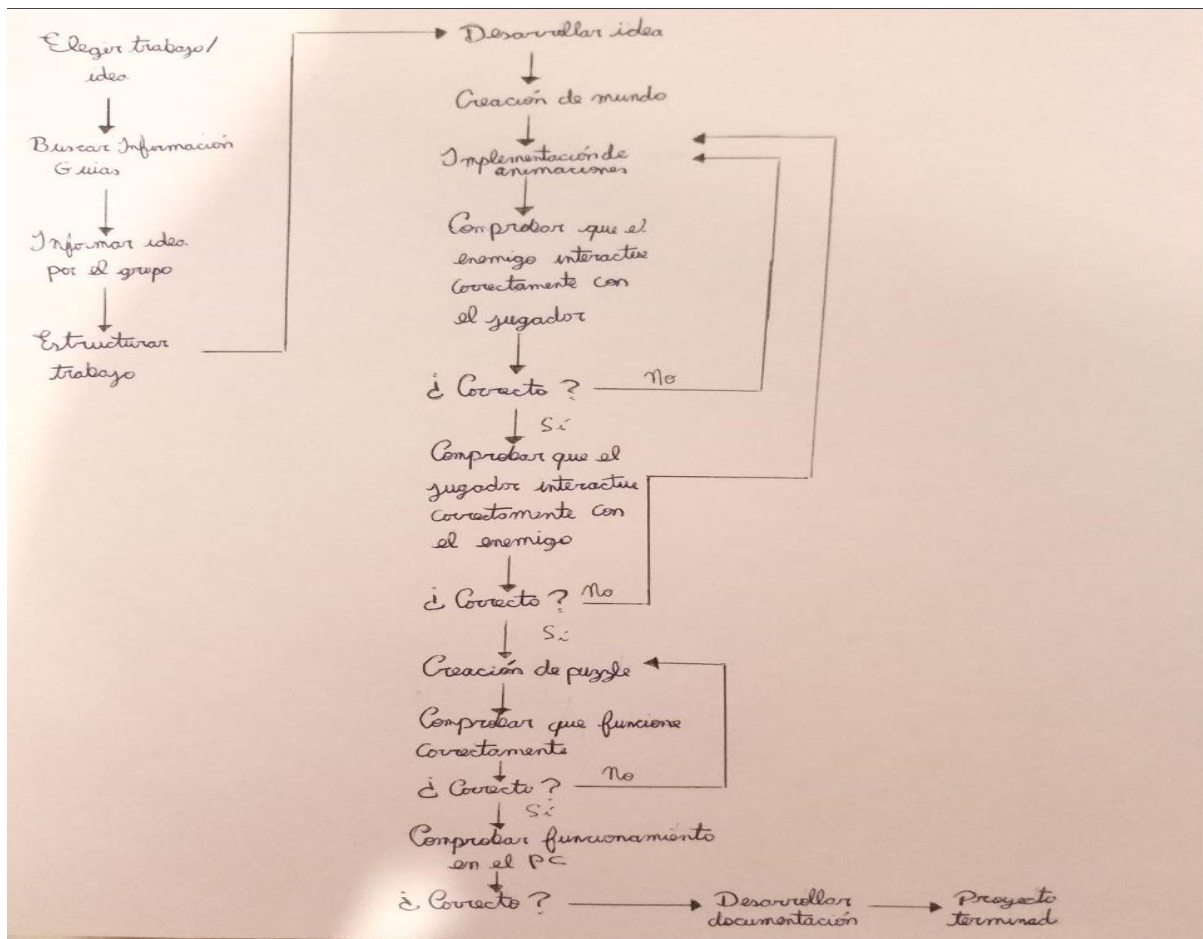 Elegir trabajo/
idea
Buscar Información
Guias
Informar idea
por el grupo
Estructurar
trabajo
Desarrollar idea
Creación de mundo
Implementación de
animaciones
Comprobar que el
enemigo interactue
correctamente con
el jugador
¿Correcto?
No
Sí
Comprobar que el
jugador interactue
correctamente con
el enemigo
¿Correcto?
No
Sí
Creación de puzzle
Comprobar que funcione
correctamente
¿Correcto?
No
Sí
Comprobar funcionamiento
en el PC
¿Correcto?
Desarrollar
documentación
Proyecto
terminad